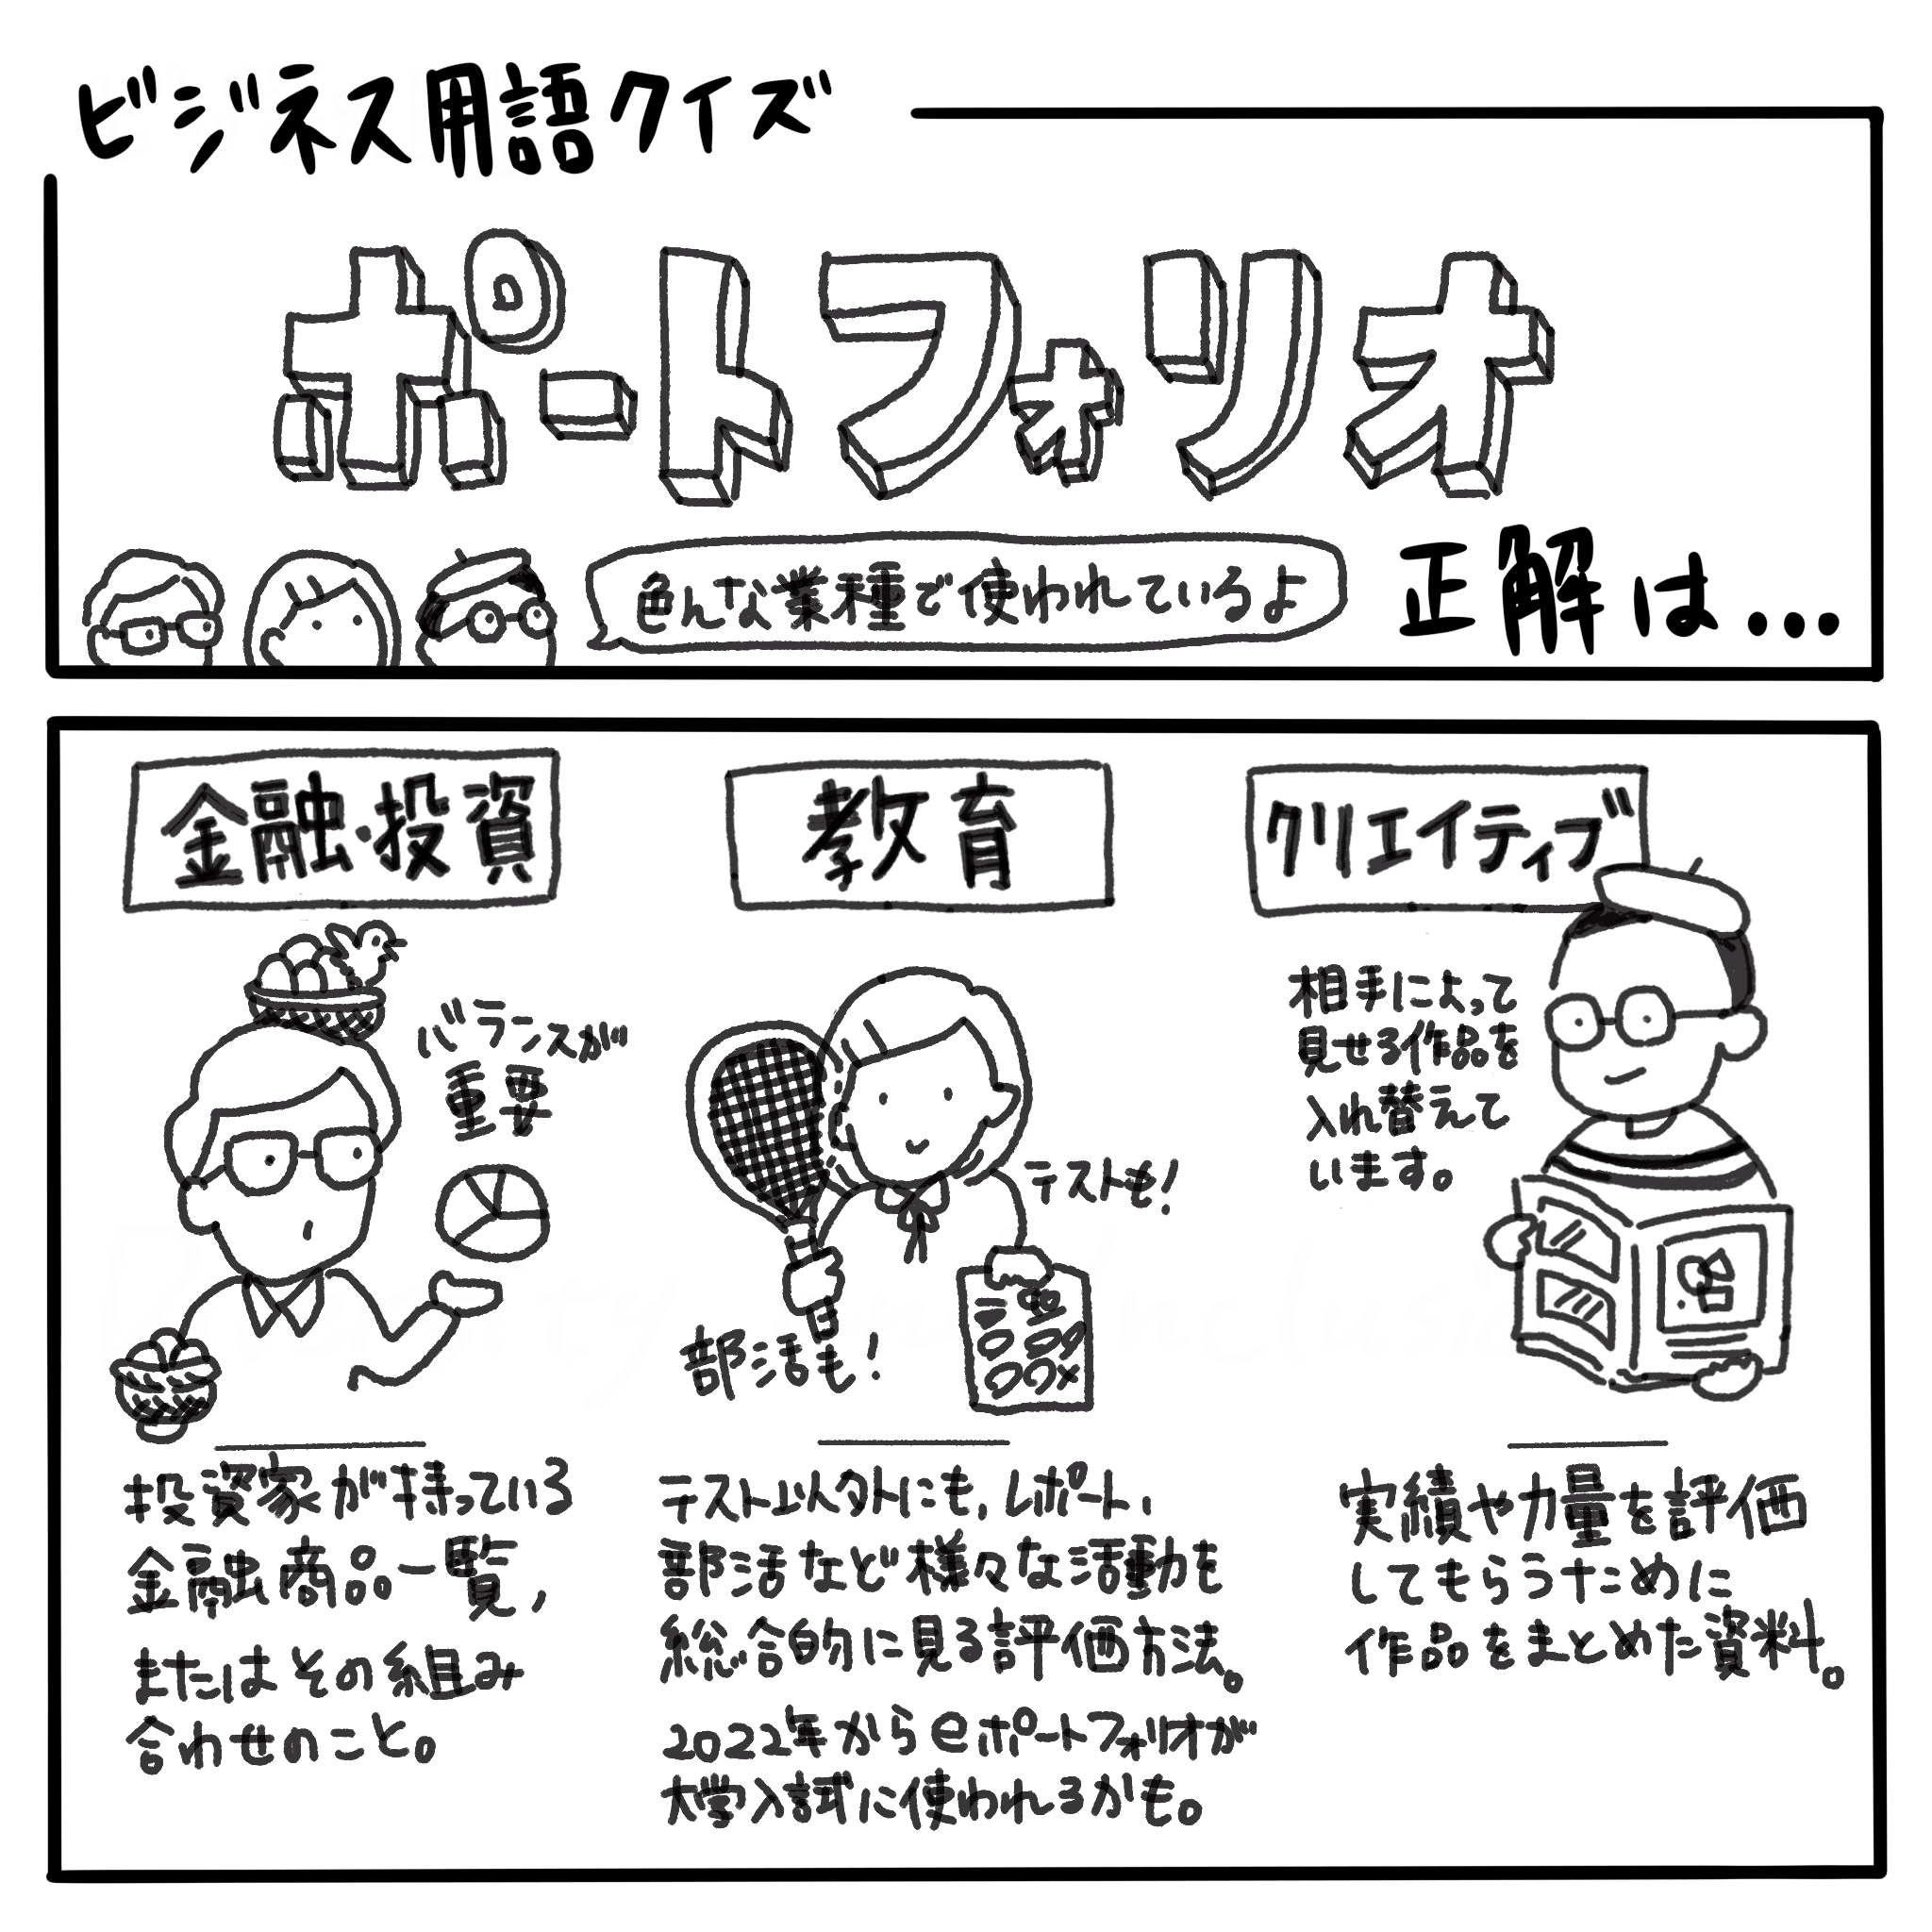 ビジネス用語クイズ
ポートフォリオ
色んな業種で使われているよ
正解は...
金融・投資
バランスが
重要
投資家が持っている
金融商品一覧、
またはその組み
合わせのこと。
教育
テストも!
部活も!
テスト以外にも、レポート、
部活など様々な活動を
総合的に見る評価方法。
2022年からeポートフォリオが
大学入試に使われるかも。
クリエイティブ
相手によって
見せる作品を
入れ替えて
います。
実績や力量を評価
してもらうために
作品をまとめた資料。